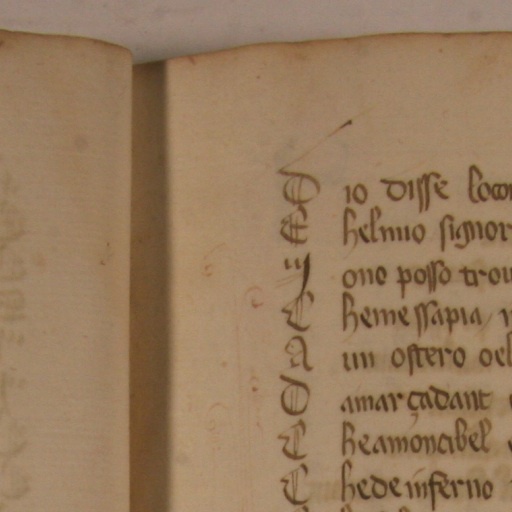 D io disse loco
E helmio signor
N one posso trou
C heme ssapia
A un ostero oel
D amarçadant
C heamoncibel
C hedeinferno